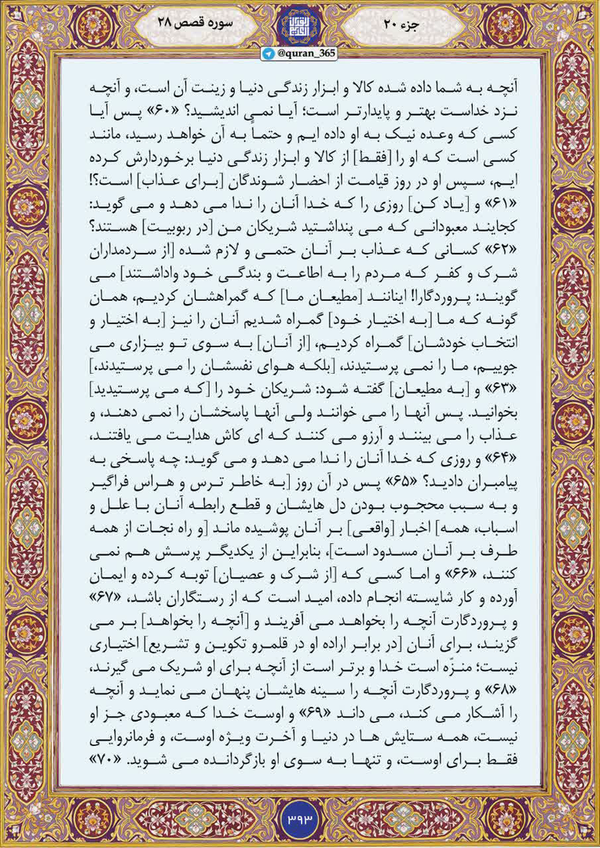 جزء ۲۰
سوره قصص ۲۸
@quran_365
آنچه به شما داده شده کالا و ابزار زندگی دنیا و زینت آن است، و آنچه
نزد خداست بهتر و پایدارتر است؛ آیا نمی اندیشید؟ «۶۰» پس آیا
کسی که وعده نیک به او داده ایم و حتماً به آن خواهد رسید، مانند
کسی است که او را [فقط] از کالا و ابزار زندگی دنیا برخوردارش کرده
ایم، سپس او در روز قیامت از احضار شوندگان [برای عذاب] است؟!
«۶۱» و [یاد کن] روزی را که خدا آنان را ندا می دهد و می گوید:
کجایند معبودانی که می پنداشتید شریکان من [در ربوبیت] هستند؟
«۶۲» کسانی که عذاب بر آنان حتمی و لازم شده [از سردمداران
شرک و کفر که مردم را به اطاعت و بندگی خود واداشتند] می
گویند: پروردگارا! اینانند [مطیعان ما] که گمراهشان کردیم، همان
گونه که ما [به اختیار خود] گمراه شدیم آنان را نیز [به اختیار و
انتخاب خودشان] گمراه کردیم، [از آنان] به سوی تو بیزاری می
جوییم، ما را نمی پرستیدند، [بلکه هوای نفسشان را می پرستیدند،]
«۶۳» و [به مطیعان] گفته شود: شریکان خود را [که می پرستیدید]
بخوانید. پس آنها را می خوانند ولی آنها پاسخشان را نمی دهند، و
عذاب را می بینند و آرزو می کنند که ای کاش هدایت می یافتند،
«۶۴» و روزی که خدا آنان را ندا می دهد و می گوید: چه پاسخی به
پیامبران دادید؟ «۶۵» پس در آن روز [به خاطر ترس و هراس فراگیر
و به سبب محجوب بودن دل هایشان و قطع رابطه آنان با علل و
اسباب، همه] اخبار [واقعی] بر آنان پوشیده ماند [و راه نجات از همه
طرف بر آنان مسدود است]، بنابراین از یکدیگر پرسش هم نمی
کنند، «۶۶» و اما کسی که [از شرک و عصیان] توبه کرده و ایمان
آورده و کار شایسته انجام داده، امید است که از رستگاران باشد، «۶۷»
و پروردگارت آنچه را بخواهد می آفریند و [آنچه را بخواهد] بر می
گزیند، برای آنان [در برابر اراده او در قلمرو تکوین و تشریع] اختیاری
نیست؛ منزّه است خدا و برتر است از آنچه برای او شریک می گیرند،
«۶۸» و پروردگارت آنچه را سینه هایشان پنهان می نماید و آنچه
را آشکار می کند، می داند «۶۹» و اوست خدا که معبودی جز او
نیست، همه ستایش ها در دنیا و آخرت ویژه اوست، و فرمانروایی
فقط برای اوست، و تنها به سوی او بازگردانده می شوید. «۷۰»
۳۹۳